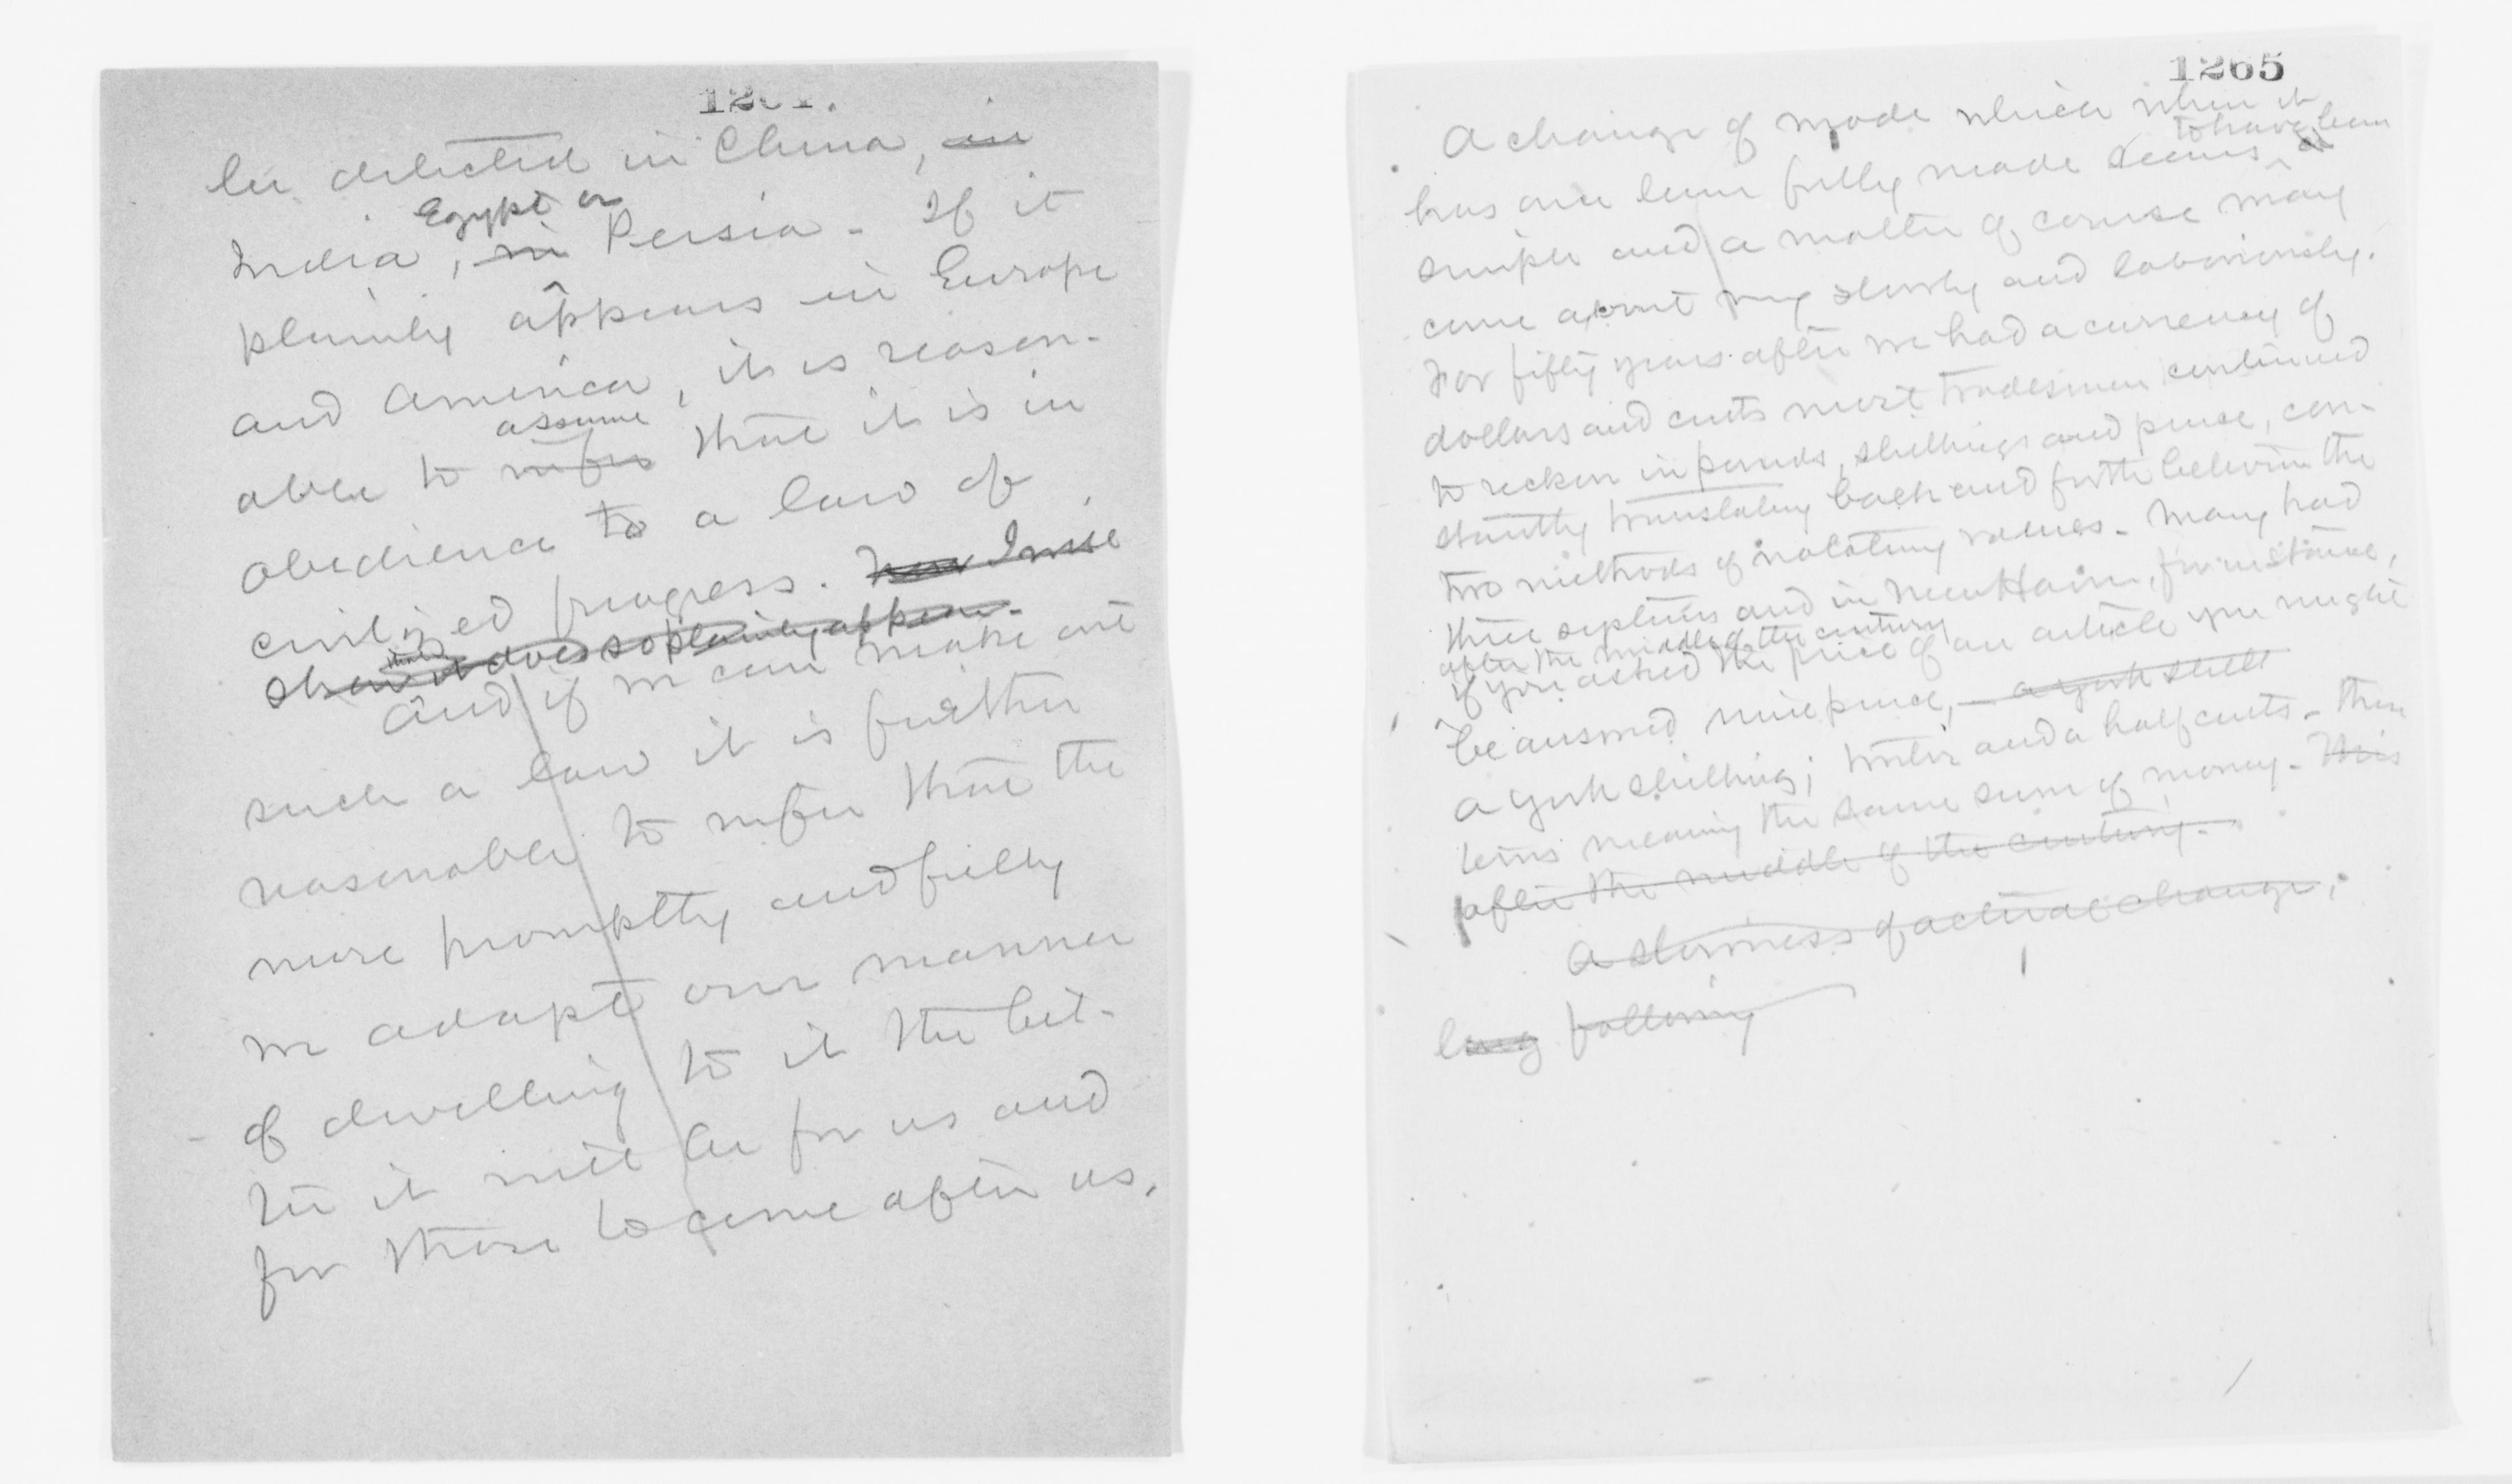 be detected in China, in
Egypt or
India, in Persia. If it
plainly appears in Europe
and America, it is reason-
assume
able to infer that it is in
obedience to a law of
civilized progress.
show it does so plainly appear.
And if we can make out
such a law it is further
reasonable to infer that the
more promptly and fully
we adapt our manner
of dwelling to it the bet-
ter it will be for us and
for those to come after us.
1265
A change of mode which when it
to have been
has once been fully made seems
simple and a matter of course may
come about very slowly and laboriously.
For fifty years after we had a currency of
dollars and cents most tradesmen continued
to reckon in pounds, shillings and pence, con-
stantly translating back and forth between the
two methods of notating values. Many had
three systems and in New Haven, for instance,
after the middle of the century
if you asked the price of an article you might
be answered nine pence, a york shill
a york shilling; twelve and a half cents. these
terms meaning the same sum of money. This
after the middle of the century.
A slowness of actual change,
long following